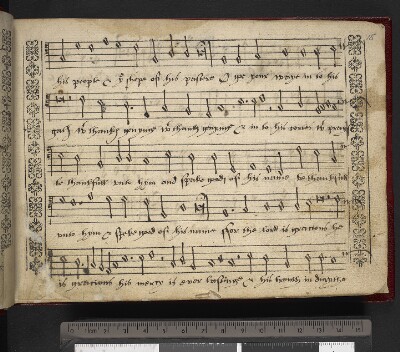 his people & yͤ shepe of his pasture O goo your waye in to his
gats wᵗ thanks gevynge wᵗ thanks gevynge & in to his courts wᵗ prays
be thankfull unto hym and speke good of his name be thankfull
unto hym & speke good of his name ffor the lord is gracious he
is gracious his mercy is ever lastinge & his trewth in duryth